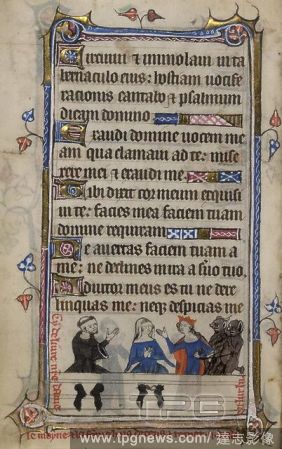 Circuiui & immolaui in ta
bernaculo eius: hostiam uocife
rationis cantabo & psalmum
dicam domino.
Exaudi domine uocem me
am qua clamaui ad te: mise
rere mei & exaudi me.
Tibi dixit cor meum exquisi
ui te: facies mea faciem tuam
domine requiram.
Ne auertas faciem tuam a
me: ne declines in ira a suo tuo.
Adiutor meus es tu ne dere
linquas me: neq; despicias me
TPG
www.tpgnews.com / 達志影像